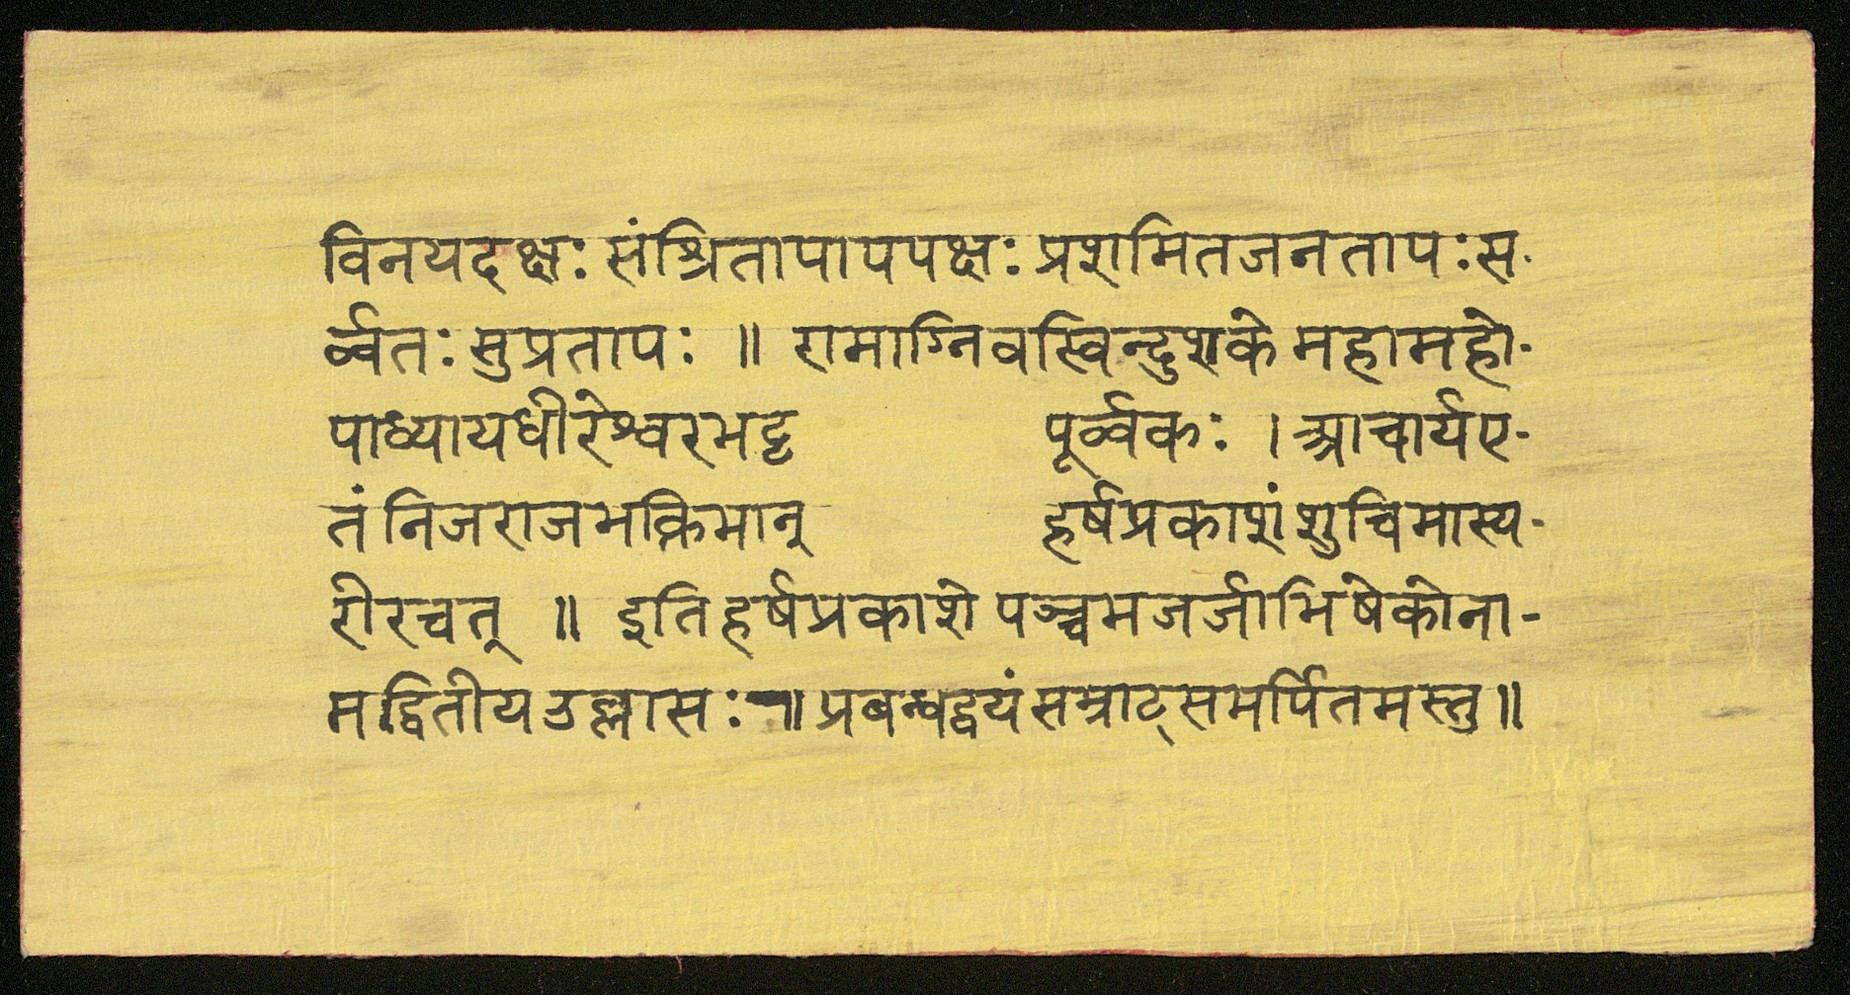 विनयदक्षः संश्रितापापपक्षः प्रशमितजनतापः स-
र्व्वतः सुप्रतापः ॥ रामाग्निवस्विन्दुशके महामहो-
पाध्यायधीरेश्वरभट्ट पूर्व्वकः । आचार्यए-
तं निजराजभक्तिमान् हर्षप्रकाशं शुचिमास्य-
रीरचत् ॥ इति हर्षप्रकाशे पञ्चमजर्जाभिषेको ना-
म द्वितीय उल्लासः ॥ प्रबन्धद्वयं सम्राट्समर्पितमस्तु ॥